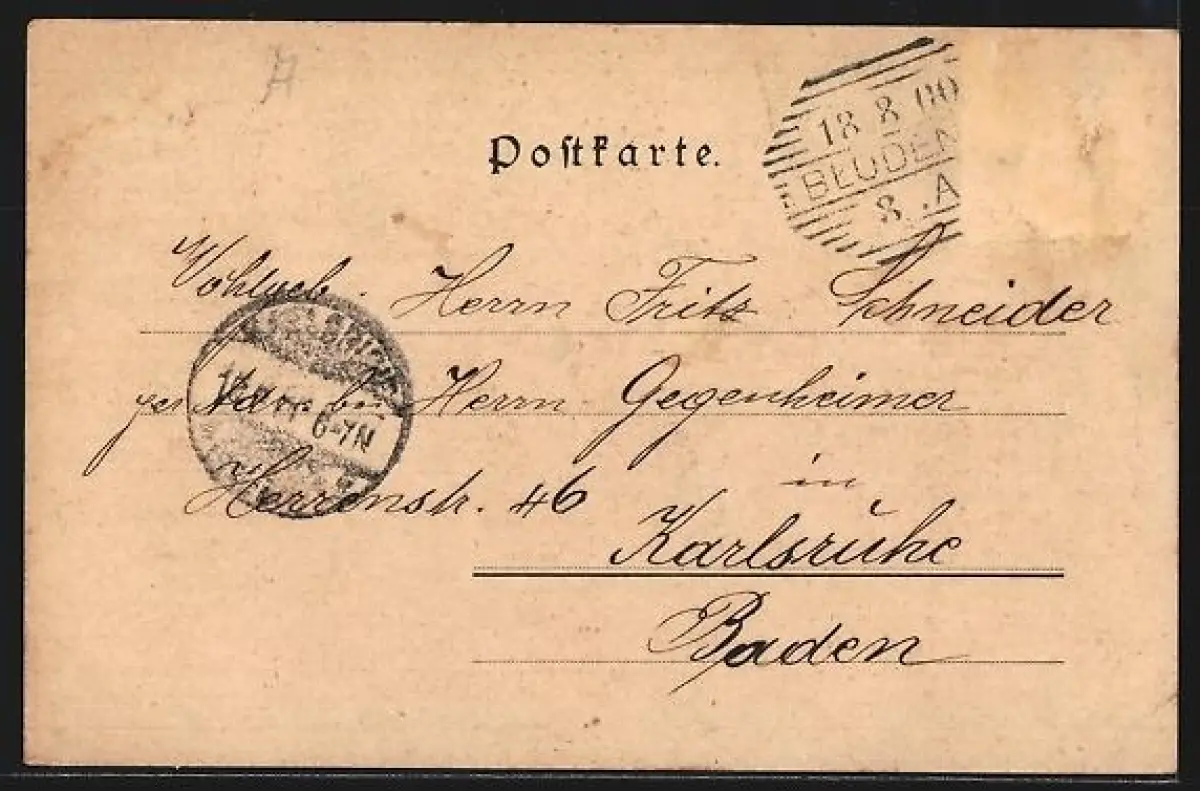 Postkarte.
18 8 00
BLUDEN
8 . A
Wohlgeb. Herrn Fritz Schneider
Herrn Gegenheimer
Herrenstr. 46 in
Karlsruhe
Baden
6-7N